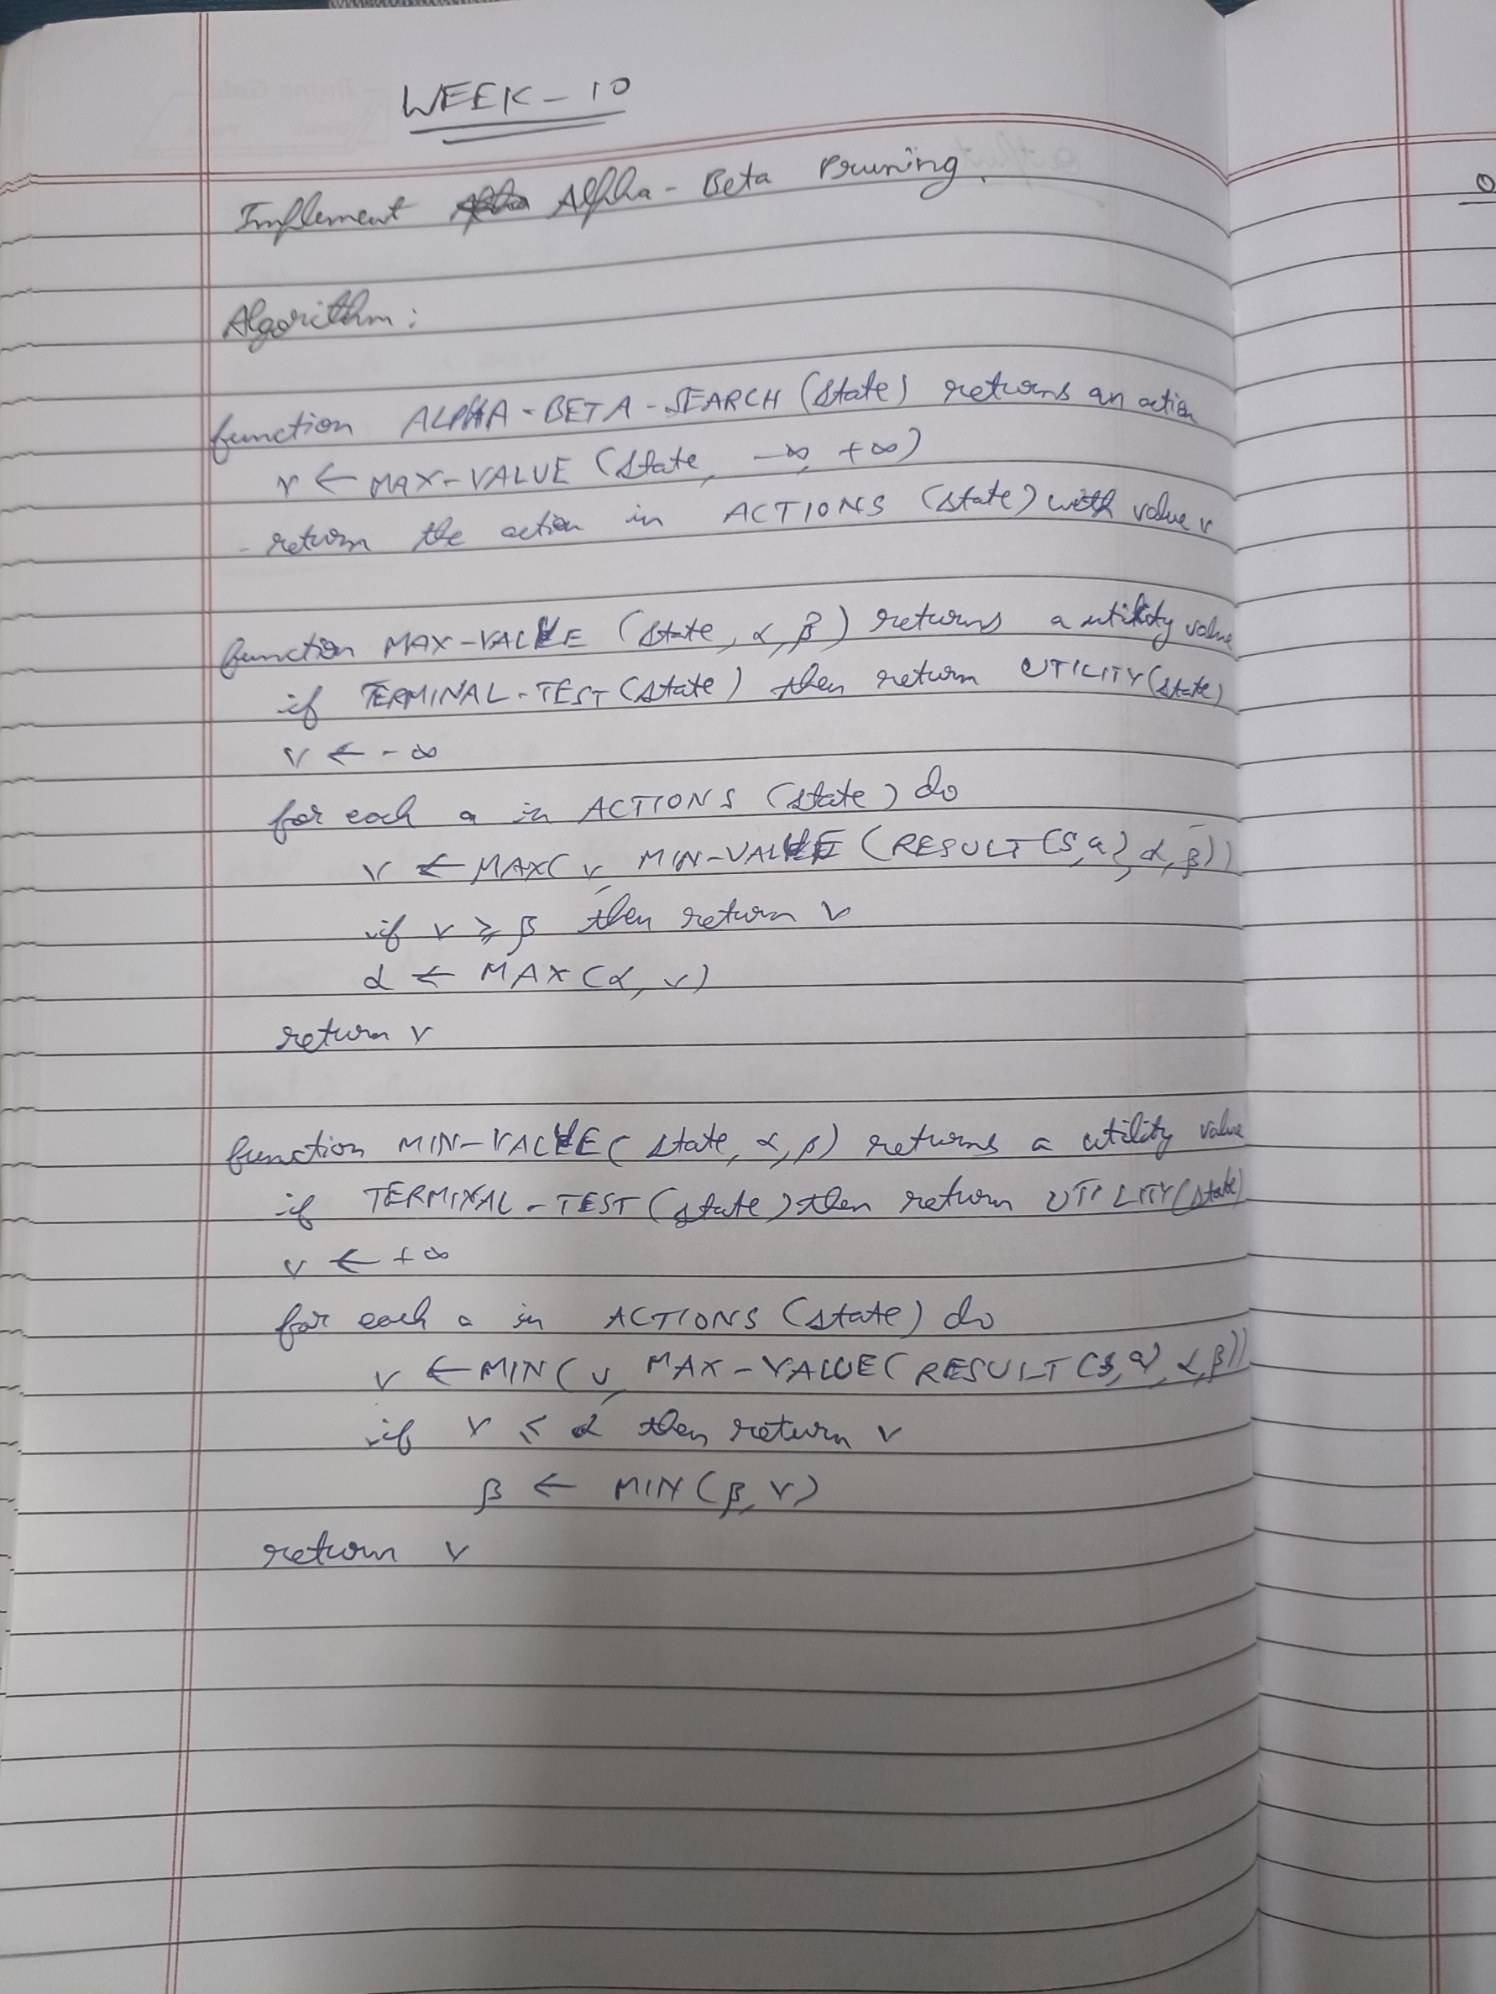 WEEK - 10
Implement Alpha - Beta Pruning.
Algorithm:
function ALPHA - BETA - SEARCH (state) returns an action
v ← MAX-VALUE (state, -∞, +∞)
- return the action in ACTIONS (state) with value v
function MAX-VALUE (state, α, β) returns a utility value
if TERMINAL-TEST (state) then return UTILITY (state)
v ← - ∞
for each a in ACTIONS (state) do
v ← MAX(v, MIN-VALUE (RESULT (S, a), α, β))
if v ≥ β then return v
α ← MAX (α, v)
return v
function MIN-VALUE (state, α, β) returns a utility value
if TERMINAL - TEST (state) then return UTILITY (state)
v ← + ∞
for each a in ACTIONS (state) do
v ← MIN (v, MAX - VALUE (RESULT (S, a), α, β))
if v ≤ α then return v
β ← MIN (β, v)
return v